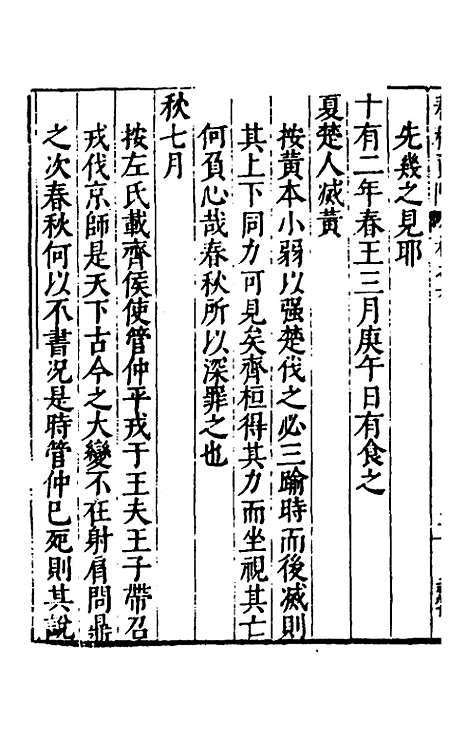 先幾之見耶
十有二年春王三月庚午日有食之
夏楚人滅黃
按黃本小弱以强楚伐之必三踰時而後滅則
其上下同力可見矣齊桓得其力而坐視其亡
何負心哉春秋所以深罪之也
秋七月
按左氏載齊侯使管仲平戎于王夫王子帶召
戎伐京師是天下古今之大變不在射肩問鼎
之次春秋何以不書况是時管仲已死則其說